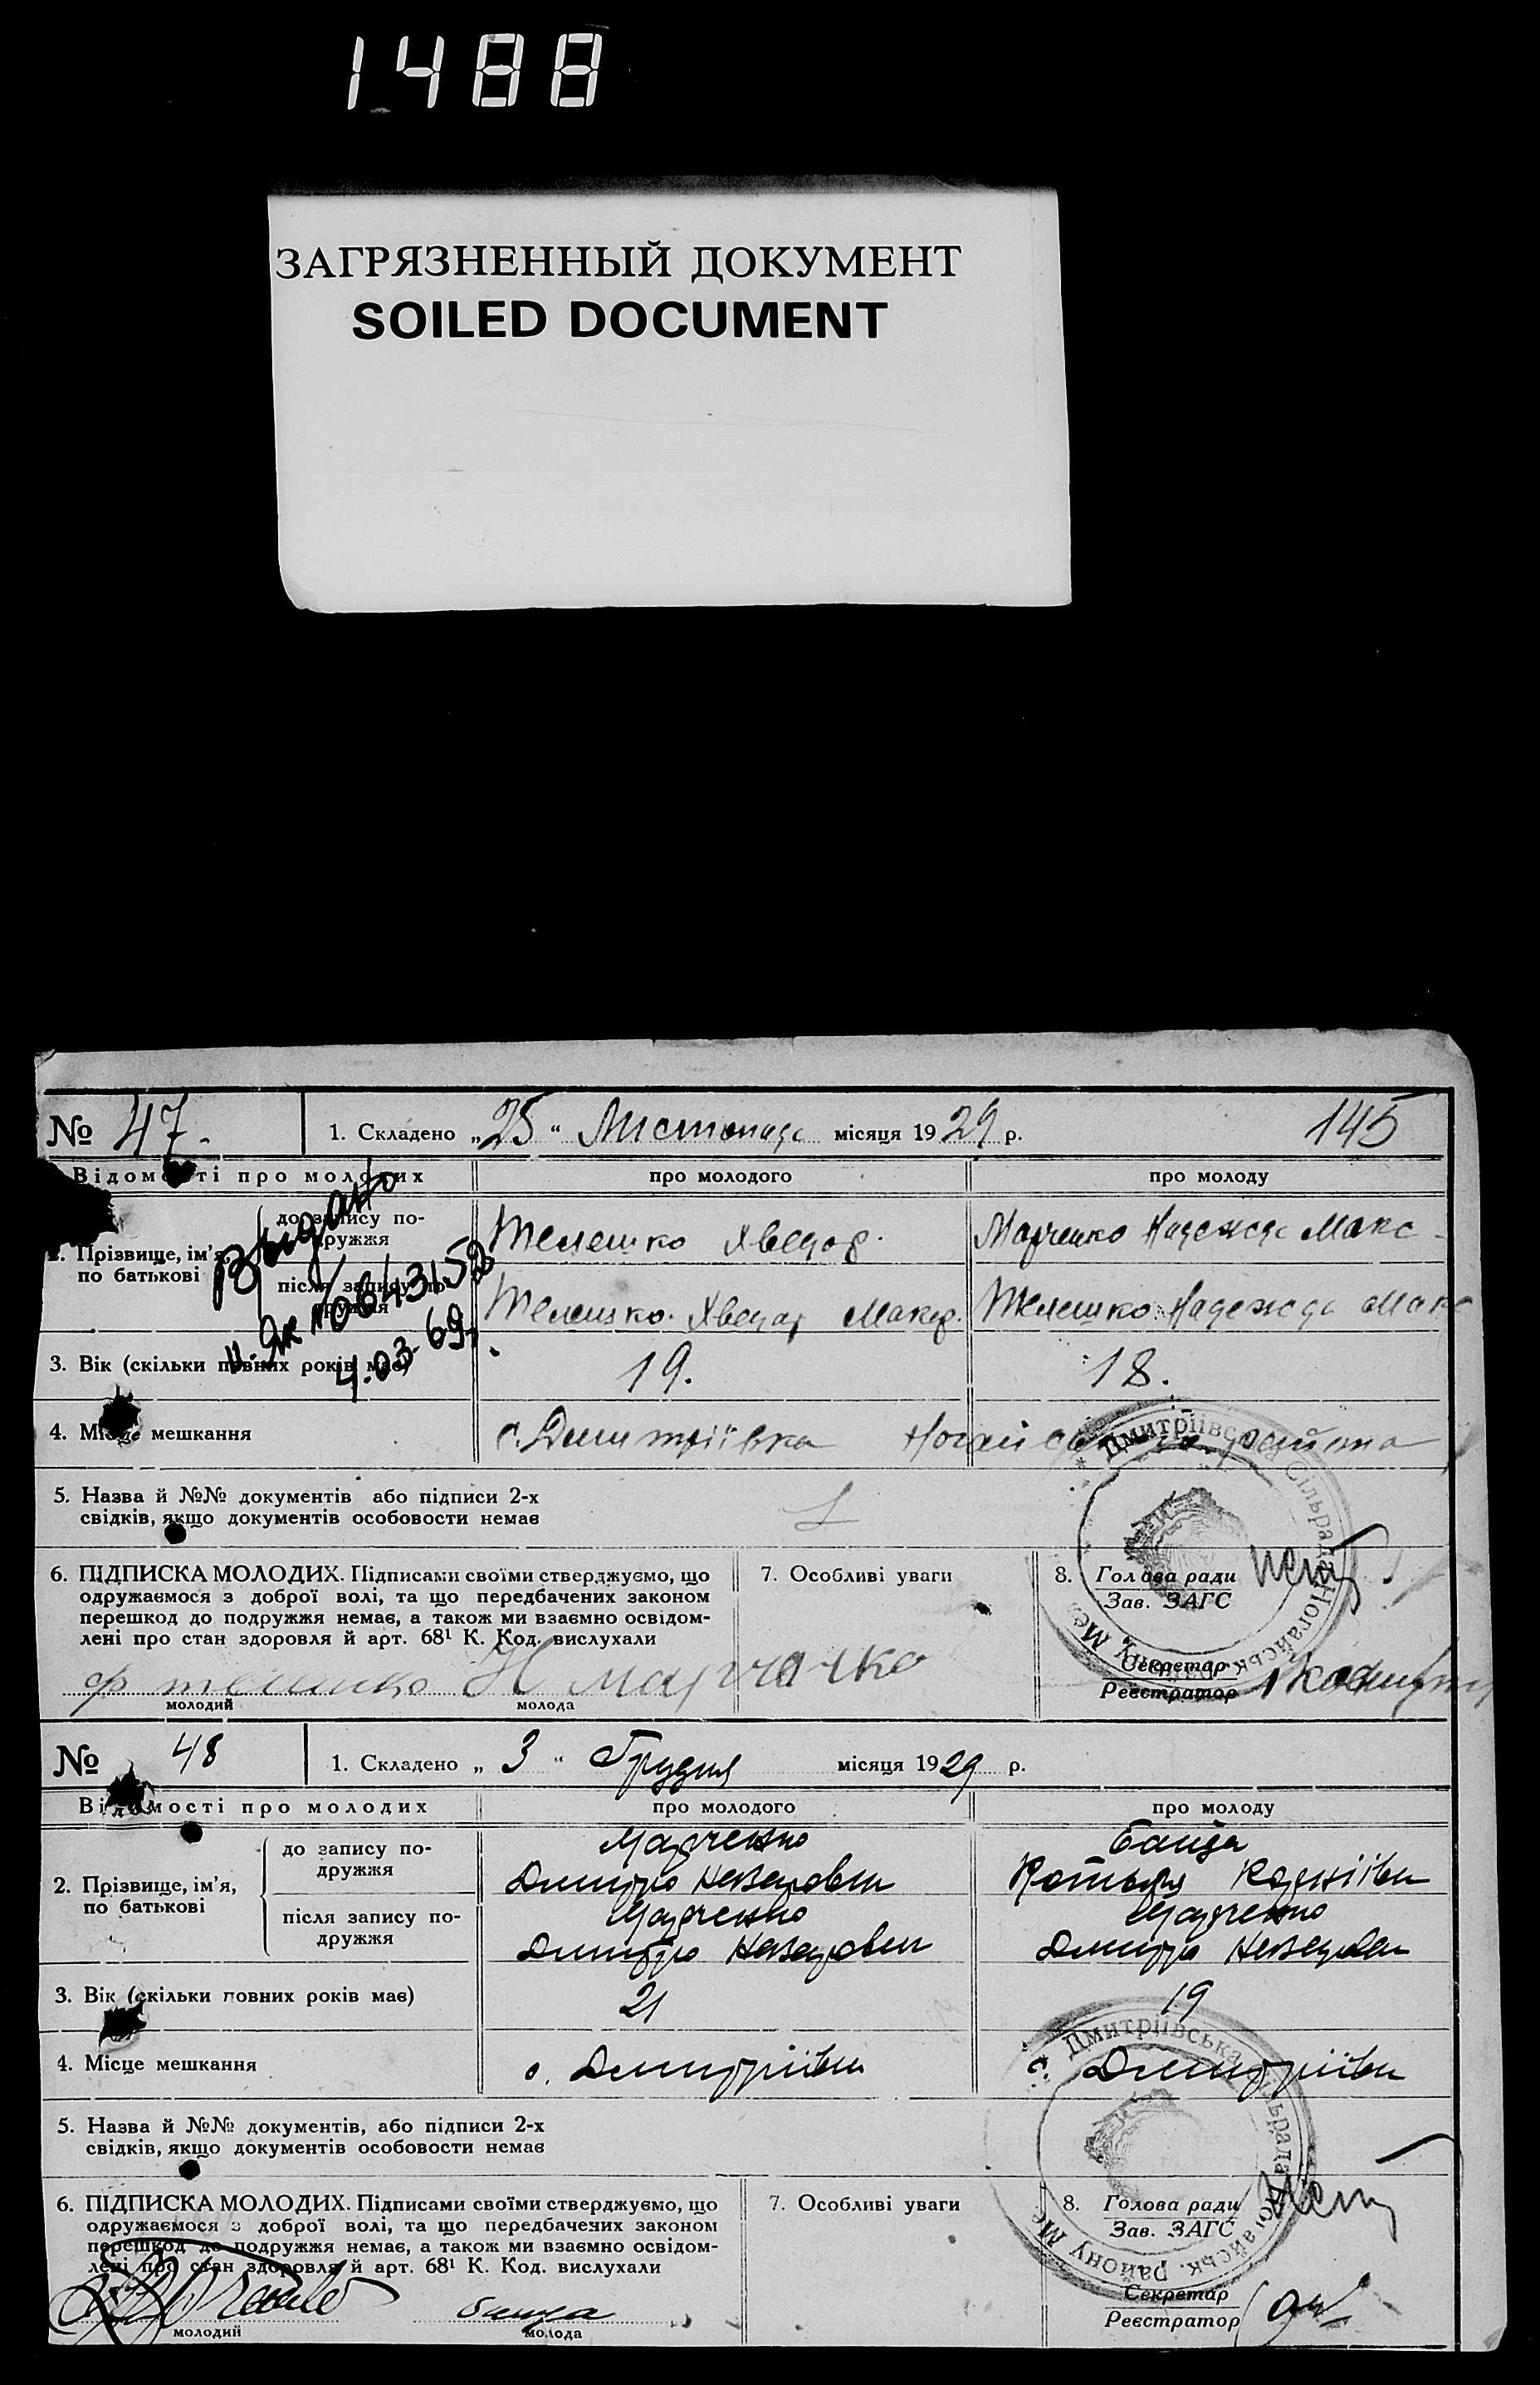 1488
ЗАГРЯЗНЕННЫЙ ДОКУМЕНТ
SOILED DOCUMENT
№ 47. 1. Складено „25“ Листопада місяця 1929 р. 145
Відомості про молодих про молодого про молоду
2. Прізвище, ім'я, по батькові
до запису подружжя Телешко Хведор. Марченко Надежда Макс
після запису Телешко Хведор Телешко Надежда Макс
Выдано
4.03.69
3. Вік (скільки повних років має) 19. 18.
4. Місце мешкання с. Дмитріївка Ногайського району
5. Назва й №№ документів або підписи 2-х
свідків, якщо документів особовости немає
6. ПІДПИСКА МОЛОДИХ. Підписами своїми стверджуємо, що
одружаємося з доброї волі, та що передбачених законом
перешкод до подружжя немає, а також ми взаємно освідом-
лені про стан здоровля й арт. 68¹ К. Код. вислухали
7. Особливі уваги
8. Голова ради
Зав. ЗАГС
Секретар
Реєстратор
Дмитріївська Сільрада Ногайськ. району
Н Марченко
молодий молода
№ 48 1. Складено „3“ Грудня місяця 1929 р.
Відомості про молодих про молодого про молоду
2. Прізвище, ім'я,
по батькові
до запису по-
дружжя
Марченко
Дмитро
Байда
після запису по-
дружжя
Марченко
Дмитро
Марченко
Дмитро
3. Вік (скільки повних років має) 21 19
4. Місце мешкання с. Дмитріївки с. Дмитріївки
5. Назва й №№ документів, або підписи 2-х
свідків, якщо документів особовости немає
6. ПІДПИСКА МОЛОДИХ. Підписами своїми стверджуємо, що
одружаємося з доброї волі, та що передбачених законом
перешкод до подружжя немає, а також ми взаємно освідом-
лені про стан здоровля й арт. 68¹ К. Код. вислухали
7. Особливі уваги
8. Голова ради
Зав. ЗАГС
Секретар
Реєстратор
Дмитріївська Сільрада Ногайськ. району
Байда
молодий молода